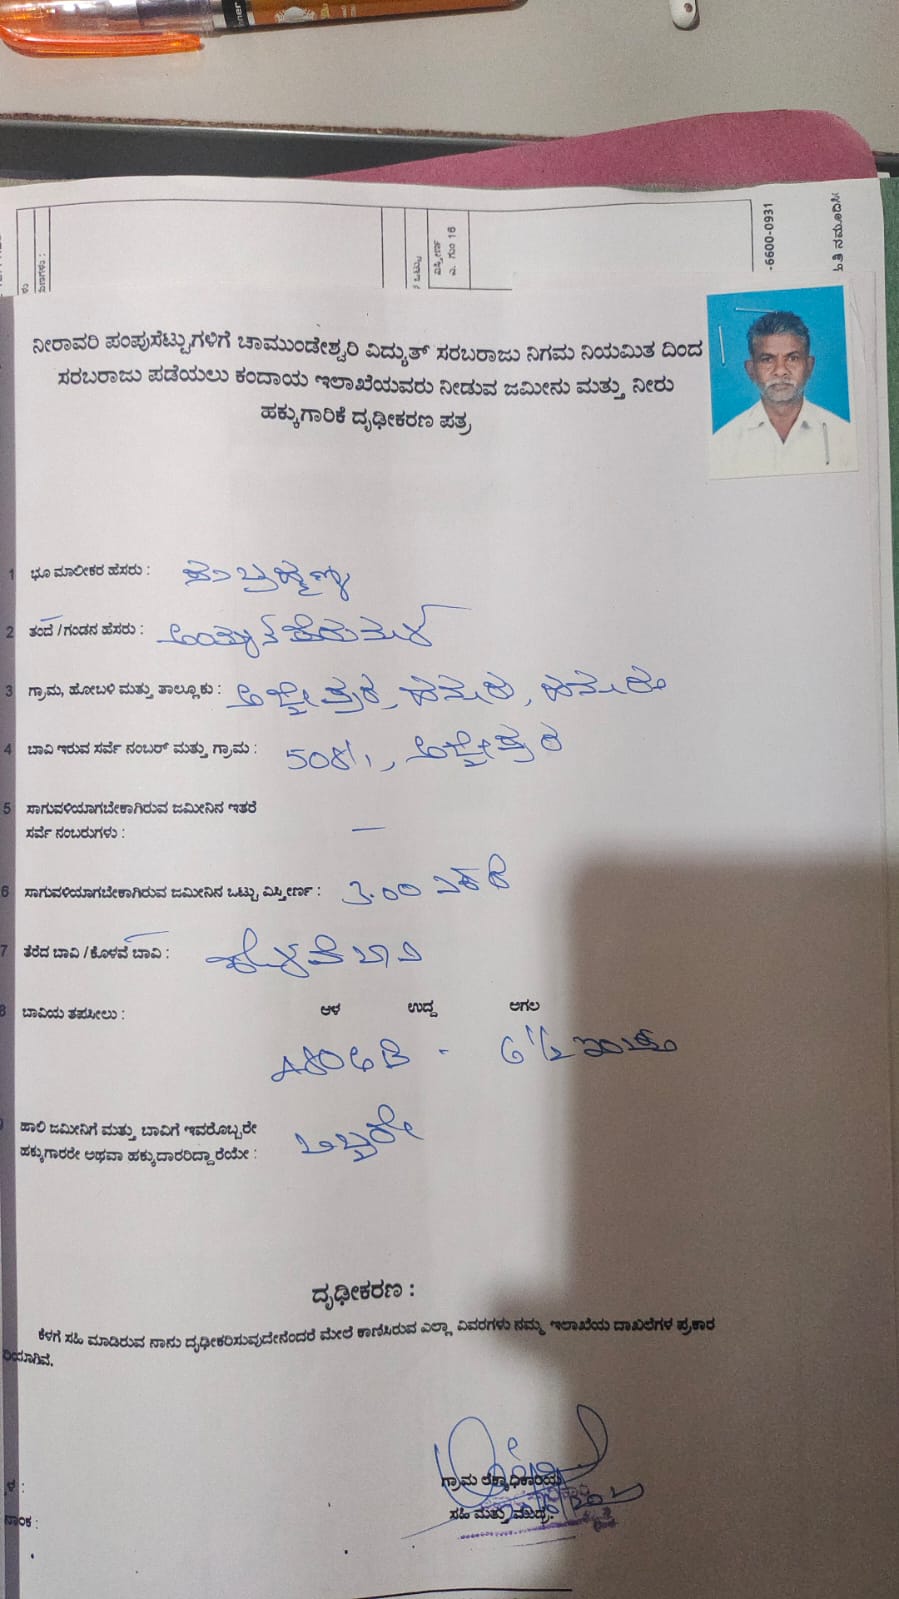 -6600-0931
ವಿಸ್ತೀರ್ಣ
ಎ. ಗುಂ 16
ನೀರಾವರಿ ಪಂಪುಸೆಟ್ಟುಗಳಿಗೆ ಚಾಮುಂಡೇಶ್ವರಿ ವಿದ್ಯುತ್ ಸರಬರಾಜು ನಿಗಮ ನಿಯಮಿತ ದಿಂದ
ಸರಬರಾಜು ಪಡೆಯಲು ಕಂದಾಯ ಇಲಾಖೆಯವರು ನೀಡುವ ಜಮೀನು ಮತ್ತು ನೀರು
ಹಕ್ಕುಗಾರಿಕೆ ದೃಢೀಕರಣ ಪತ್ರ
1 ಭೂ ಮಾಲೀಕರ ಹೆಸರು : ಸುಬ್ರಹ್ಮಣ್ಯ
2 ತಂದೆ / ಗಂಡನ ಹೆಸರು :
3 ಗ್ರಾಮ, ಹೋಬಳಿ ಮತ್ತು ತಾಲ್ಲೂಕು : ಅಜ್ಜೀಪುರ, ಹನೂರು, ಹನೂರು
4 ಬಾವಿ ಇರುವ ಸರ್ವೆ ನಂಬರ್ ಮತ್ತು ಗ್ರಾಮ : ಅಜ್ಜೀಪುರ
5 ಸಾಗುವಳಿಯಾಗಬೇಕಾಗಿರುವ ಜಮೀನಿನ ಇತರೆ
ಸರ್ವೆ ನಂಬರುಗಳು : —
6 ಸಾಗುವಳಿಯಾಗಬೇಕಾಗಿರುವ ಜಮೀನಿನ ಒಟ್ಟು ವಿಸ್ತೀರ್ಣ : 3.00 ಎಕರೆ
7 ತೆರೆದ ಬಾವಿ / ಕೊಳವೆ ಬಾವಿ : ಕೊಳವೆ ಬಾವಿ
8 ಬಾವಿಯ ತಪಸೀಲು : ಆಳ ಉದ್ದ ಅಗಲ
ಅಡಿ - 6 1/2 ಇಂಚು
ಹಾಲಿ ಜಮೀನಿಗೆ ಮತ್ತು ಬಾವಿಗೆ ಇವರೊಬ್ಬರೇ
ಹಕ್ಕುಗಾರರೇ ಅಥವಾ ಹಕ್ಕುದಾರರಿದ್ದಾರೆಯೇ : ಒಬ್ಬರೇ
ದೃಢೀಕರಣ :
ಕೆಳಗೆ ಸಹಿ ಮಾಡಿರುವ ನಾನು ದೃಢೀಕರಿಸುವುದೇನೆಂದರೆ ಮೇಲೆ ಕಾಣಿಸಿರುವ ಎಲ್ಲಾ ವಿವರಗಳು ನಮ್ಮ ಇಲಾಖೆಯ ದಾಖಲೆಗಳ ಪ್ರಕಾರ
ರಿಯಾಗಿವೆ.
ಗ್ರಾಮ ಲೆಕ್ಕಾಧಿಕಾರಿಯ
ಳ :
ಸಹಿ ಮತ್ತು ಮುದ್ರೆ.
ನಾಂಕ :